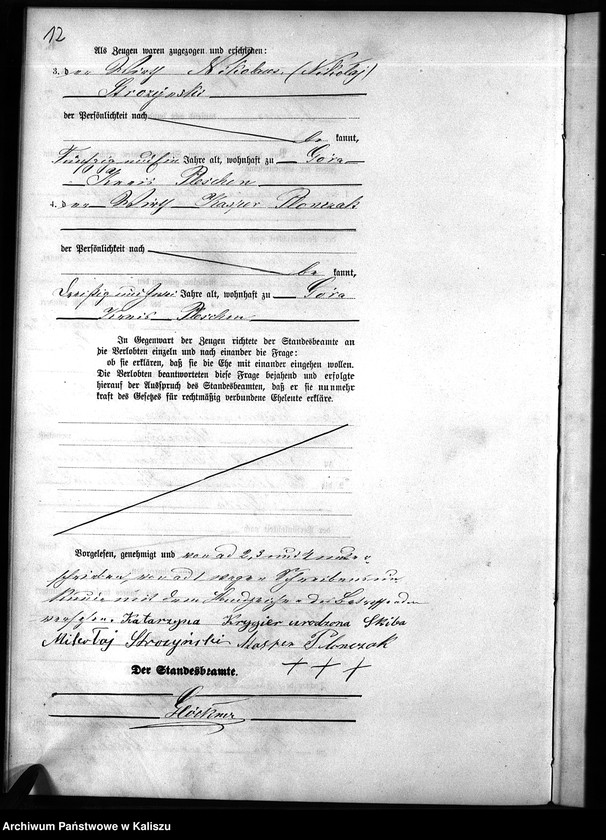 12
Als Zeugen waren zugezogen und erschienen:
3. der Wirth Nikolaus (Nikolaj)
Strozynski
der Persönlichkeit nach
be kannt,
Fünfzig und Jahre alt, wohnhaft zu Gora
Kreis Pleschen
4. der Wirth Kasper Plonczak
der Persönlichkeit nach
be kannt,
Dreißig und zwei Jahre alt, wohnhaft zu Gora
Kreis Pleschen
In Gegenwart der Zeugen richtete der Standesbeamte an
die Verlobten einzeln und nach einander die Frage:
ob sie erklären, daß sie die Ehe mit einander eingehen wollen.
Die Verlobten beantworteten diese Frage bejahend und erfolgte
hierauf der Ausspruch des Standesbeamten, daß er sie nunmehr
kraft des Gesetzes für rechtmäßig verbundene Eheleute erkläre.
Vorgelesen, genehmigt und von ad 2, 3 und 4 unter-
schrieben, von ad 1 wegen Schreibensun-
kunde mit dem Handzeichen des Betreffenden
versehen. Katarzyna Krygier urodzona Skiba
Mikołaj Strożyński Kasper Plonczak
Der Standesbeamte. + + +
Glöckner
Archiwum Państwowe w Kaliszu